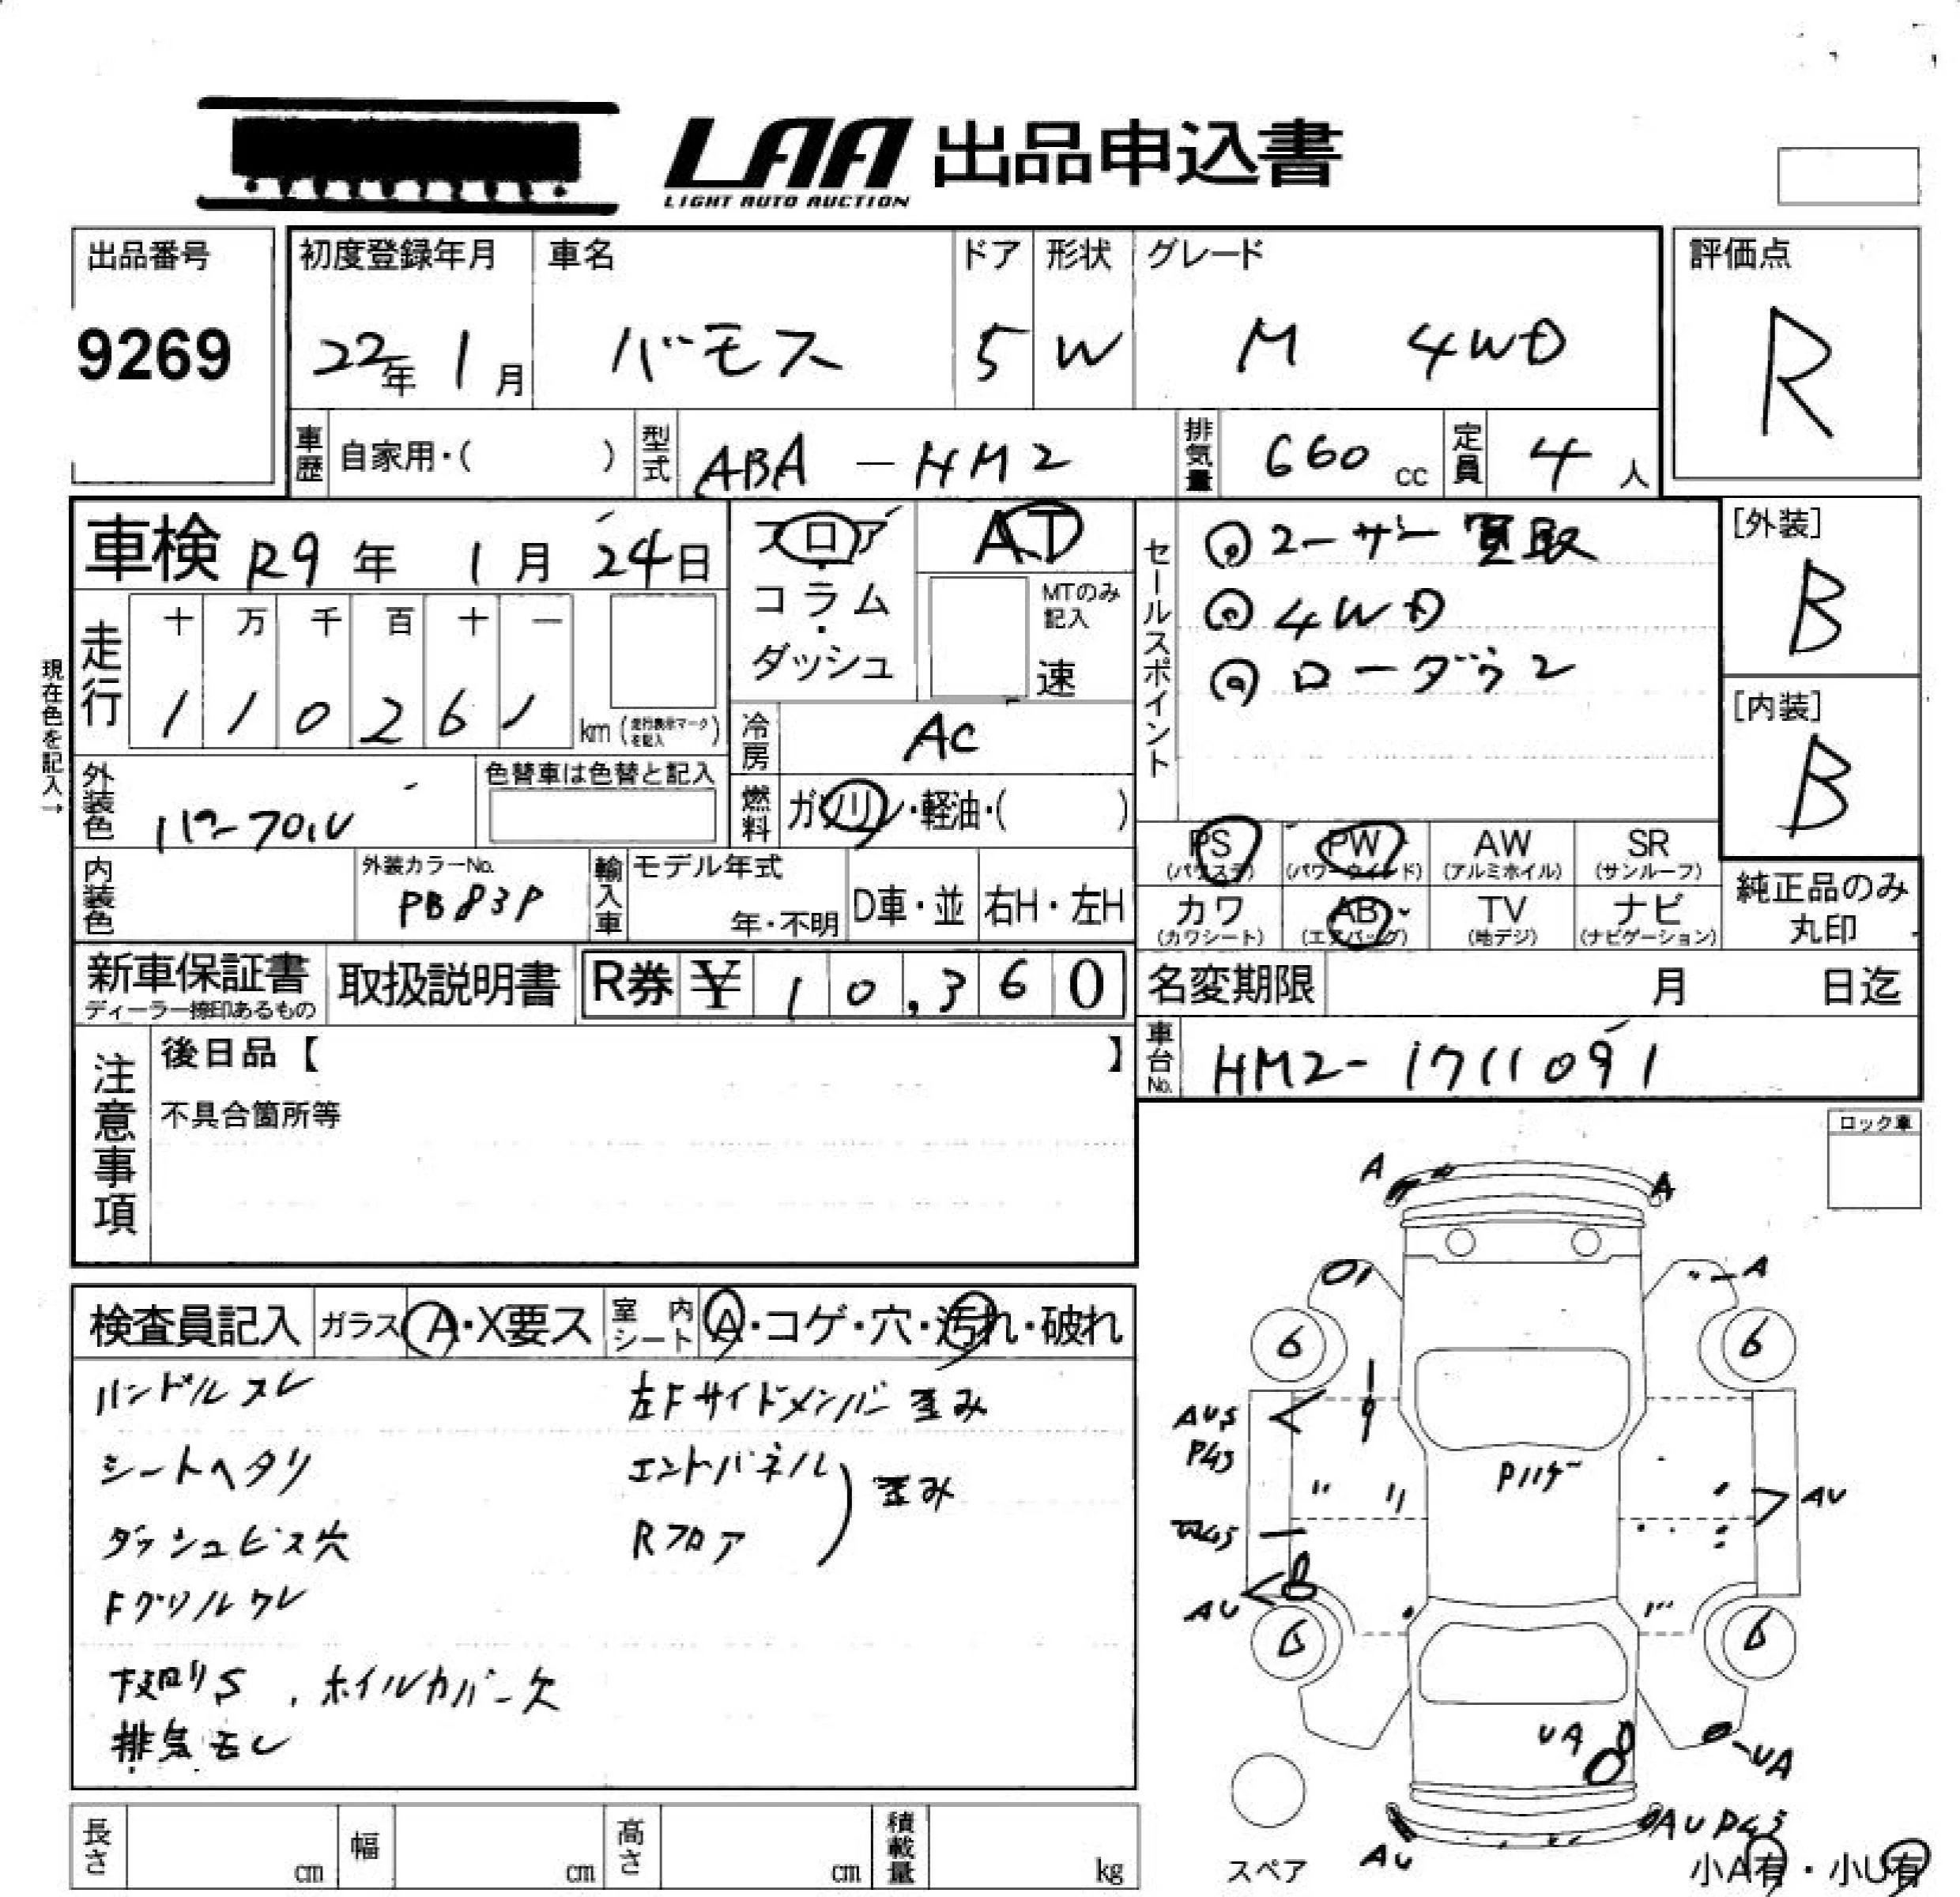 LAA 出品申込書
LIGHT AUTO AUCTION
出品番号
9269
初度登録年月
22年 1月
車名
バモス
ドア
5
形状
W
グレード
M 4WD
評価点
R
車歴 自家用・( )
型式 ABA - HM2
排気量 660 cc
定員 4 人
車検 R9年 1月 24日
フロア・コラム・ダッシュ
AT
MTのみ記入
速
セールスポイント
◎ユーザー買取
◎4WD
◎ローダウン
[外装]
B
[内装]
B
現在色を記入→
走行
十 万 千 百 十 一
1 1 0 2 6 1
km (走行表示マークを記入)
冷房 AC
燃料 ガソリン・軽油・( )
外装色
色替車は色替と記入
内装色
外装カラーNo.
PB83P
輸入車
モデル年式
年・不明
D車・並
右H・左H
PS (パワステ)
PW (パワーウインド)
AW (アルミホイル)
SR (サンルーフ)
カワ (カワシート)
AB (エアバッグ)
TV (地デジ)
ナビ (ナビゲーション)
純正品のみ丸印
新車保証書
ディーラー捺印あるもの
取扱説明書
R券 ¥ 10,360
名変期限 月 日迄
車台No. HM2-1711091
注意事項
後日品【 】
不具合箇所等
ロック車
検査員記入
ガラス A・X要ス
室内シート A・コゲ・穴・汚れ・破れ
ハンドルスレ
シートヘタリ
ダッシュビス穴
Fグリルワレ
下回りS、ホイルカバー欠
排気モレ
左Fサイドメンバー歪み
エンドパネル
Rフロア
歪み
A
A
A
6
6
AU
AU
Pハゲ
6
6
UA
UA
AU
スペア
小A有・小U有
長さ cm
幅 cm
高さ cm
積載量 kg